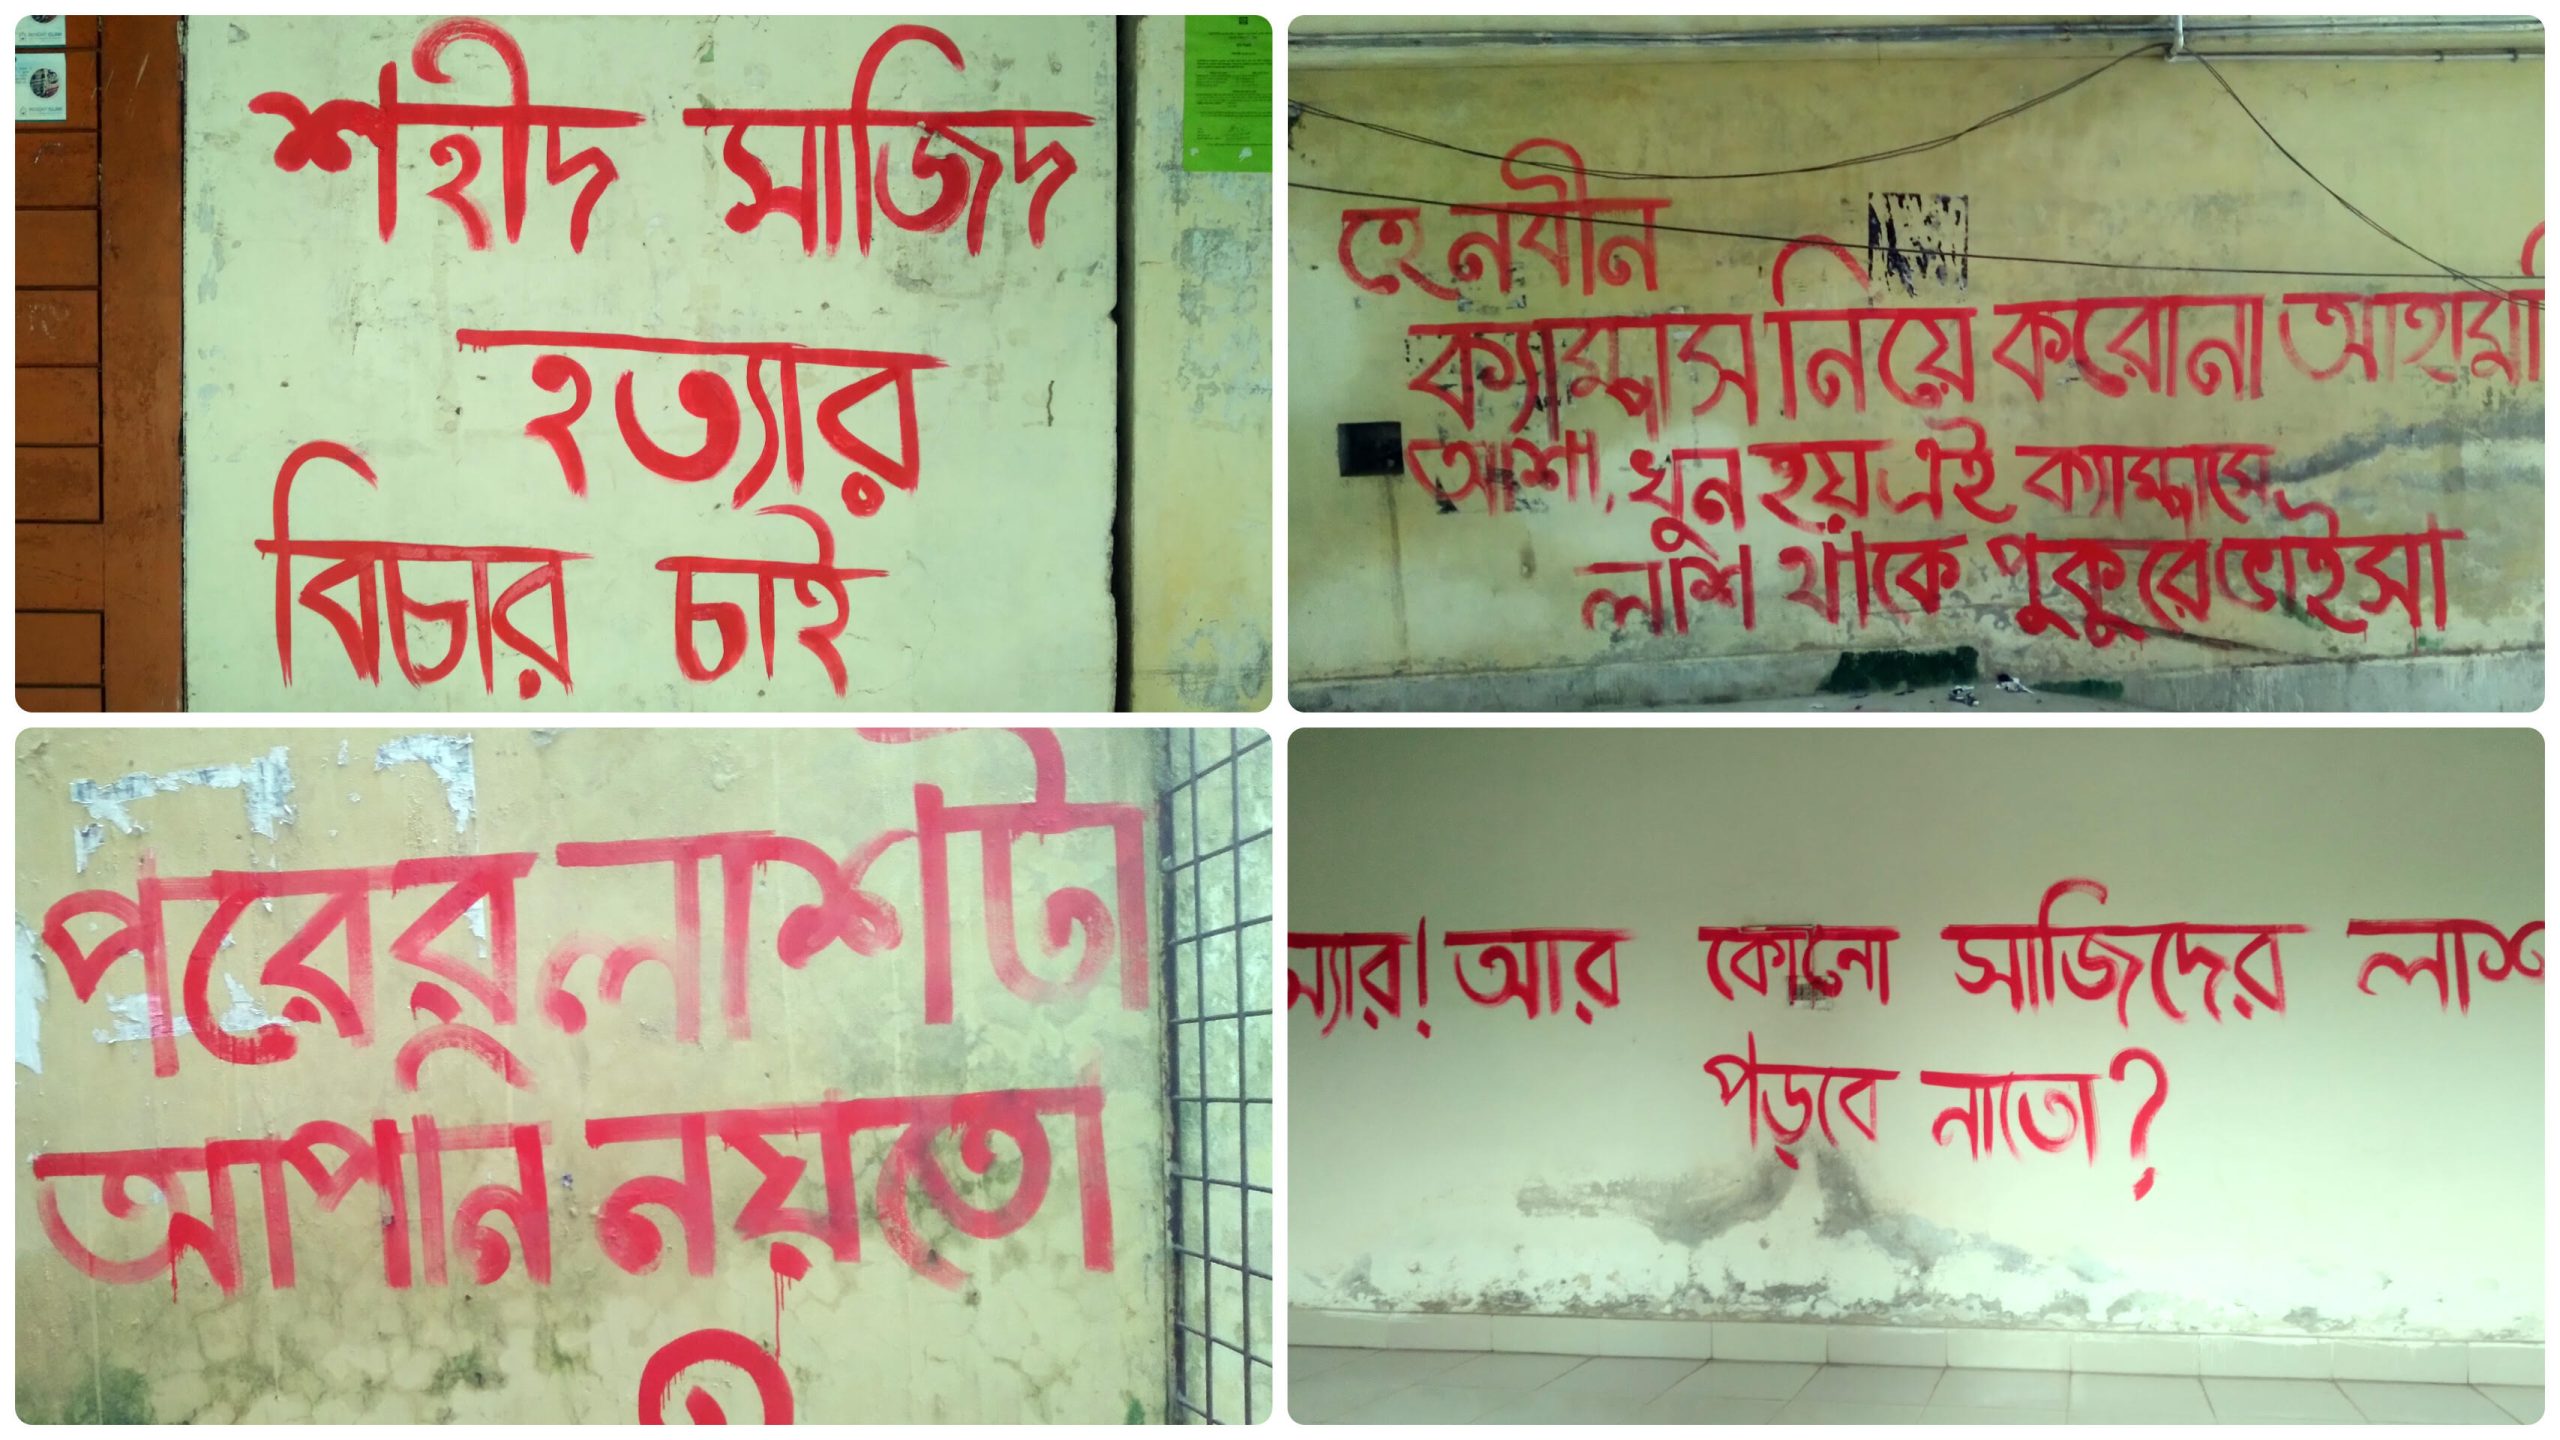 শহীদ সাজিদ
হত্যার
বিচার চাই
হে নবীন
ক্যাম্পাস নিয়ে করোনা
আশা, খুন হয় এই ক্যাম্পাসে
লাশ থাকে পুকুরে ভাইসা
পরের লাশটা
আপনি নয়তো
আর কোনো সাজিদের লাশ
পড়বে নাতো?